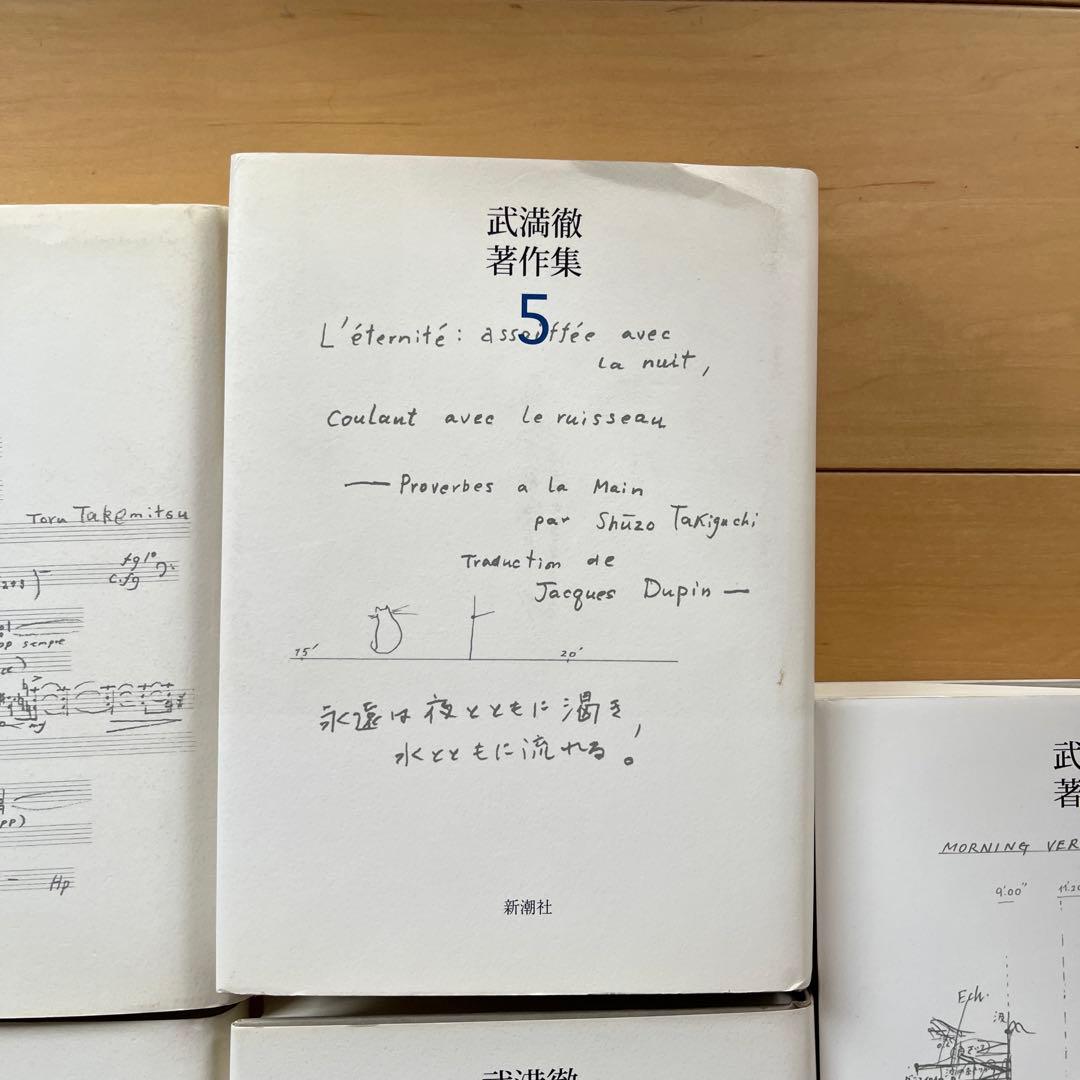 武満徹
著作集
5
L'éternité : assoiffée avec
la nuit,
Coulant avec le ruisseau
— Proverbes a la Main
par Shūzo Takiguchi
Traduction de
Jacques Dupin —
15′
20′
永遠は夜とともに渇き,
水とともに流れる。
新潮社
Toru Takemitsu
fg 1°
c.fg
pp sempre
mf
pp)
Hp
武
著
MORNING VER
9′:00″
11′:20
Ech.
波
武満徹